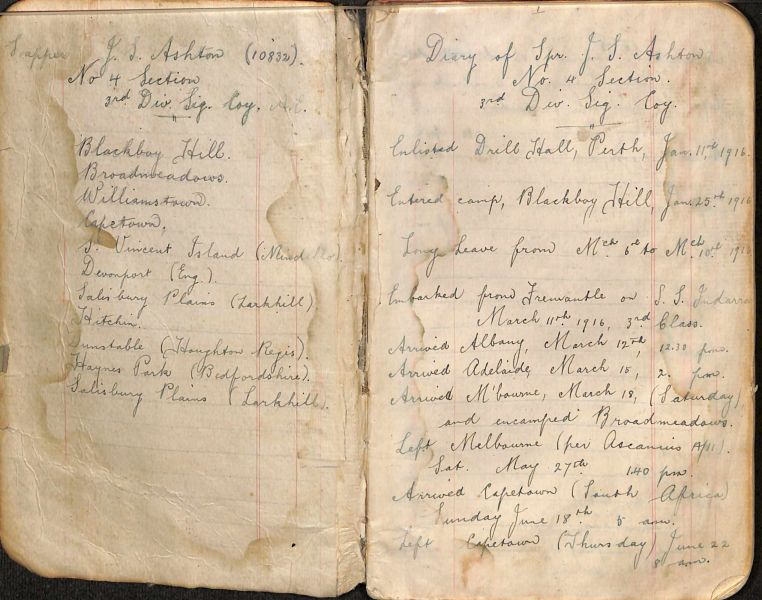 Sapper J. S. Ashton (10832).
No 4 Section
3rd Div. Sig. Coy.
Blackboy Hill.
Broadmeadows.
Williamstown.
Capetown,
St. Vincent Island (Mindello).
Devonport (Eng.).
Salisbury Plains (Larkhill)
Hitchin.
Dunstable (Houghton Regis).
Haynes Park (Bedfordshire).
Salisbury Plains (Larkhill).
Diary of Spr. J. S. Ashton
No. 4 Section.
3rd Div. Sig. Coy.
Enlisted Drill Hall, Perth, Jan. 11th 1916.
Entered camp, Blackboy Hill, Jan. 25th 1916
Long Leave from Mch 6th to Mch 10th 1916
Embarked from Fremantle on S. S. Indarra
March 11th 1916, 3rd Class.
Arrived Albany, March 12th, 12.30 pm.
Arrived Adelaide, March 15, 2. pm.
Arrived M'bourne, March 18, (Saturday)
and encamped Broadmeadows.
Left Melbourne (per Ascanius A/11).
Sat. May 27th 1.40 pm.
Arrived Capetown (South Africa)
Sunday June 18th 5 am.
Left Capetown (Thursday) June 22
8 am.